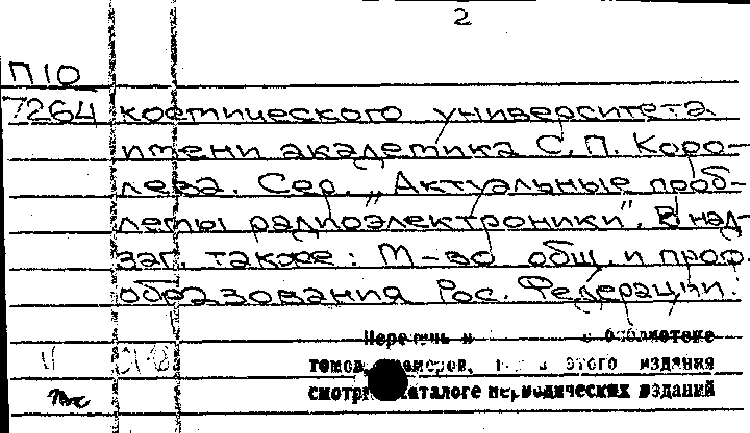 2
П10
7264 космического университета
имени академика С.П. Коро-
лева. Сер. „Актуальные проб-
лемы радиоэлектроники". В над-
заг. также: М-во общ. и проф.
образования Рос. Федерации.
Перечень и в библиотеке
томов, номеров, этого издания
смотри каталоге периодических изданий